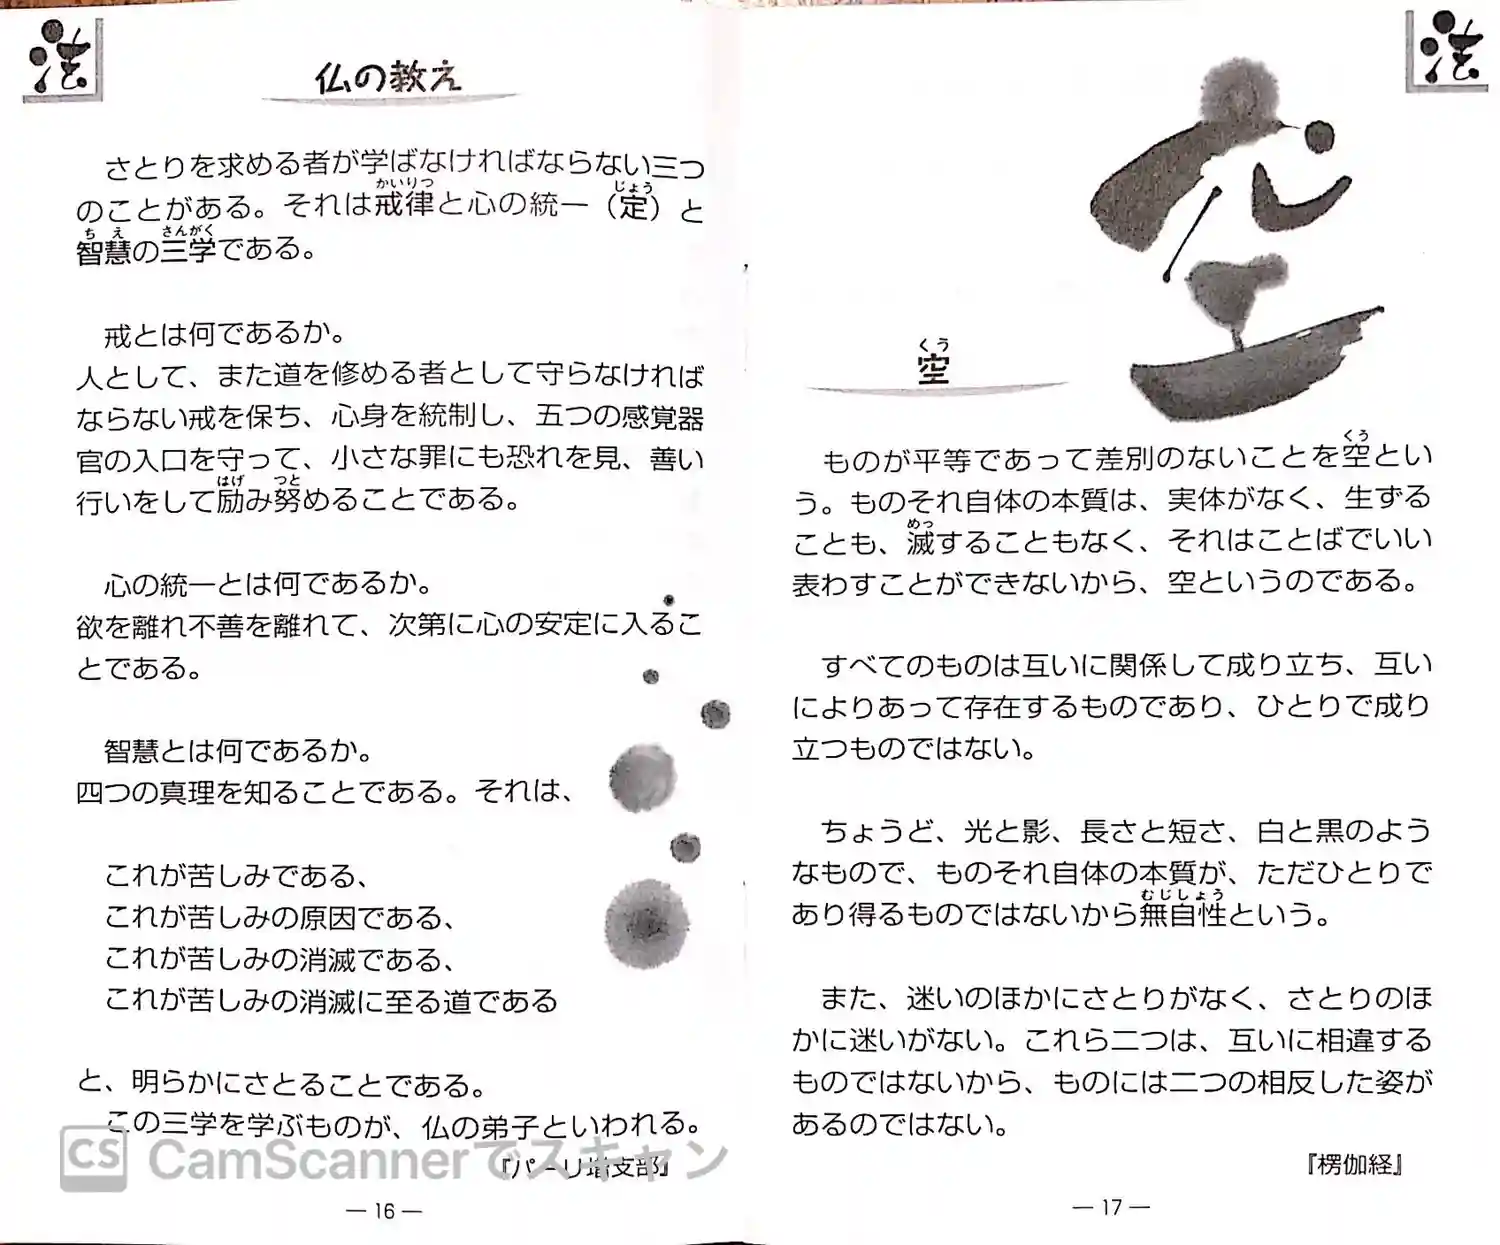 法
仏の教え
さとりを求める者が学ばなければならない三つ
のことがある。それは戒律と心の統一（定）と
智慧の三学である。
戒とは何であるか。
人として、また道を修める者として守らなければ
ならない戒を保ち、心身を統制し、五つの感覚器
官の入口を守って、小さな罪にも恐れを見、善い
行いをして励み努めることである。
心の統一とは何であるか。
欲を離れ不善を離れて、次第に心の安定に入るこ
とである。
智慧とは何であるか。
四つの真理を知ることである。それは、
これが苦しみである、
これが苦しみの原因である、
これが苦しみの消滅である、
これが苦しみの消滅に至る道である
と、明らかにさとることである。
この三学を学ぶものが、仏の弟子といわれる。
『パーリ増支部』
CS CamScannerでスキャン
― 16 ―
法
空
空
ものが平等であって差別のないことを空とい
う。ものそれ自体の本質は、実体がなく、生ずる
ことも、滅することもなく、それはことばでいい
表わすことができないから、空というのである。
すべてのものは互いに関係して成り立ち、互い
によりあって存在するものであり、ひとりで成り
立つものではない。
ちょうど、光と影、長さと短さ、白と黒のよう
なもので、ものそれ自体の本質が、ただひとりで
あり得るものではないから無自性という。
また、迷いのほかにさとりがなく、さとりのほ
かに迷いがない。これら二つは、互いに相違する
ものではないから、ものには二つの相反した姿が
あるのではない。
『楞伽経』
― 17 ―